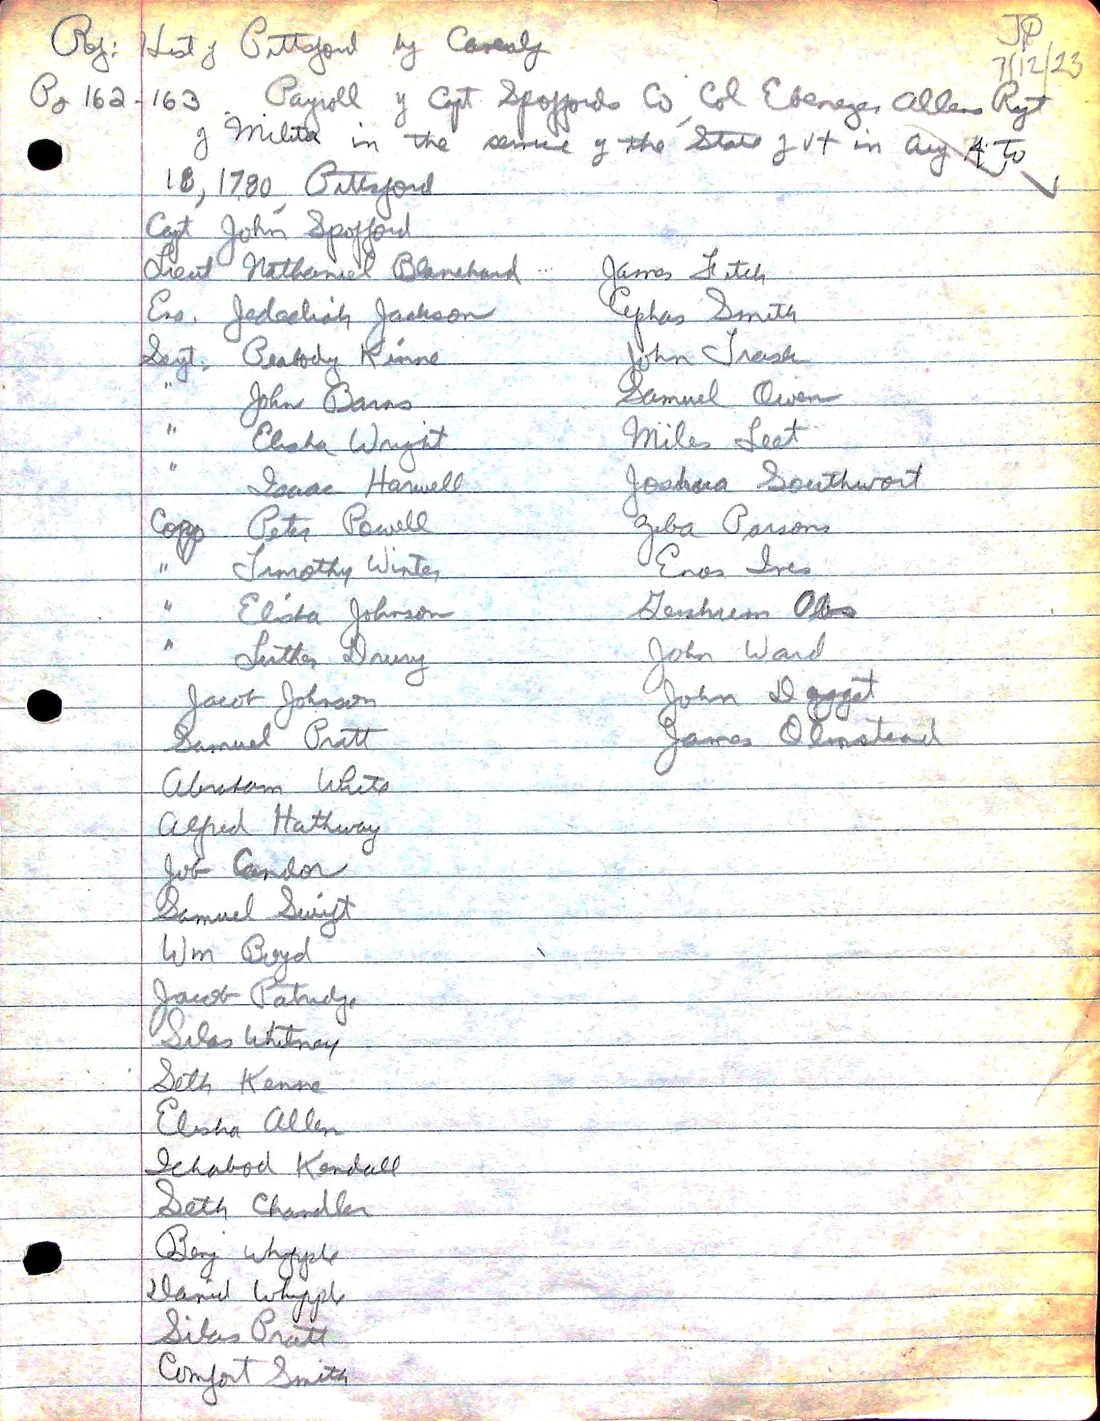 Ref: Hist of Pittsford by Caverly
JP
7/12/23
Pg 162-163 Payroll of Capt Spoffords Co, Col Ebenezer Allens Regt
of Militia in the service of the State of Vt in Aug 4 to
18, 1780, Pittsford
Capt John Spofford
Lieut Nathaniel Blanchard
Ens. Jedediah Jackson
Sergt. Peabody Kinne
" John Barns
" Elisha Wright
" Isaac Harwell
Corp Peter Powell
" Timothy Winter
" Elisha Johnson
" Luther Drury
Jacob Johnson
Samuel Pratt
Abraham White
Alfred Hathway
Job Candor
Samuel Swift
Wm Boyd
Jacob Patridge
Silas Whitney
Seth Kenne
Elisha Allen
Ichabod Kendall
Seth Chandler
Benj Whipple
Daniel Whipple
Silas Pratt
Comfort Smith
James Fitch
Cephas Smith
John Trask
Samuel Owen
Miles Leet
Joshua Southwort
Ziba Parsons
Enos Ives
Gershem
John Ward
John Dagget
James Olmstead